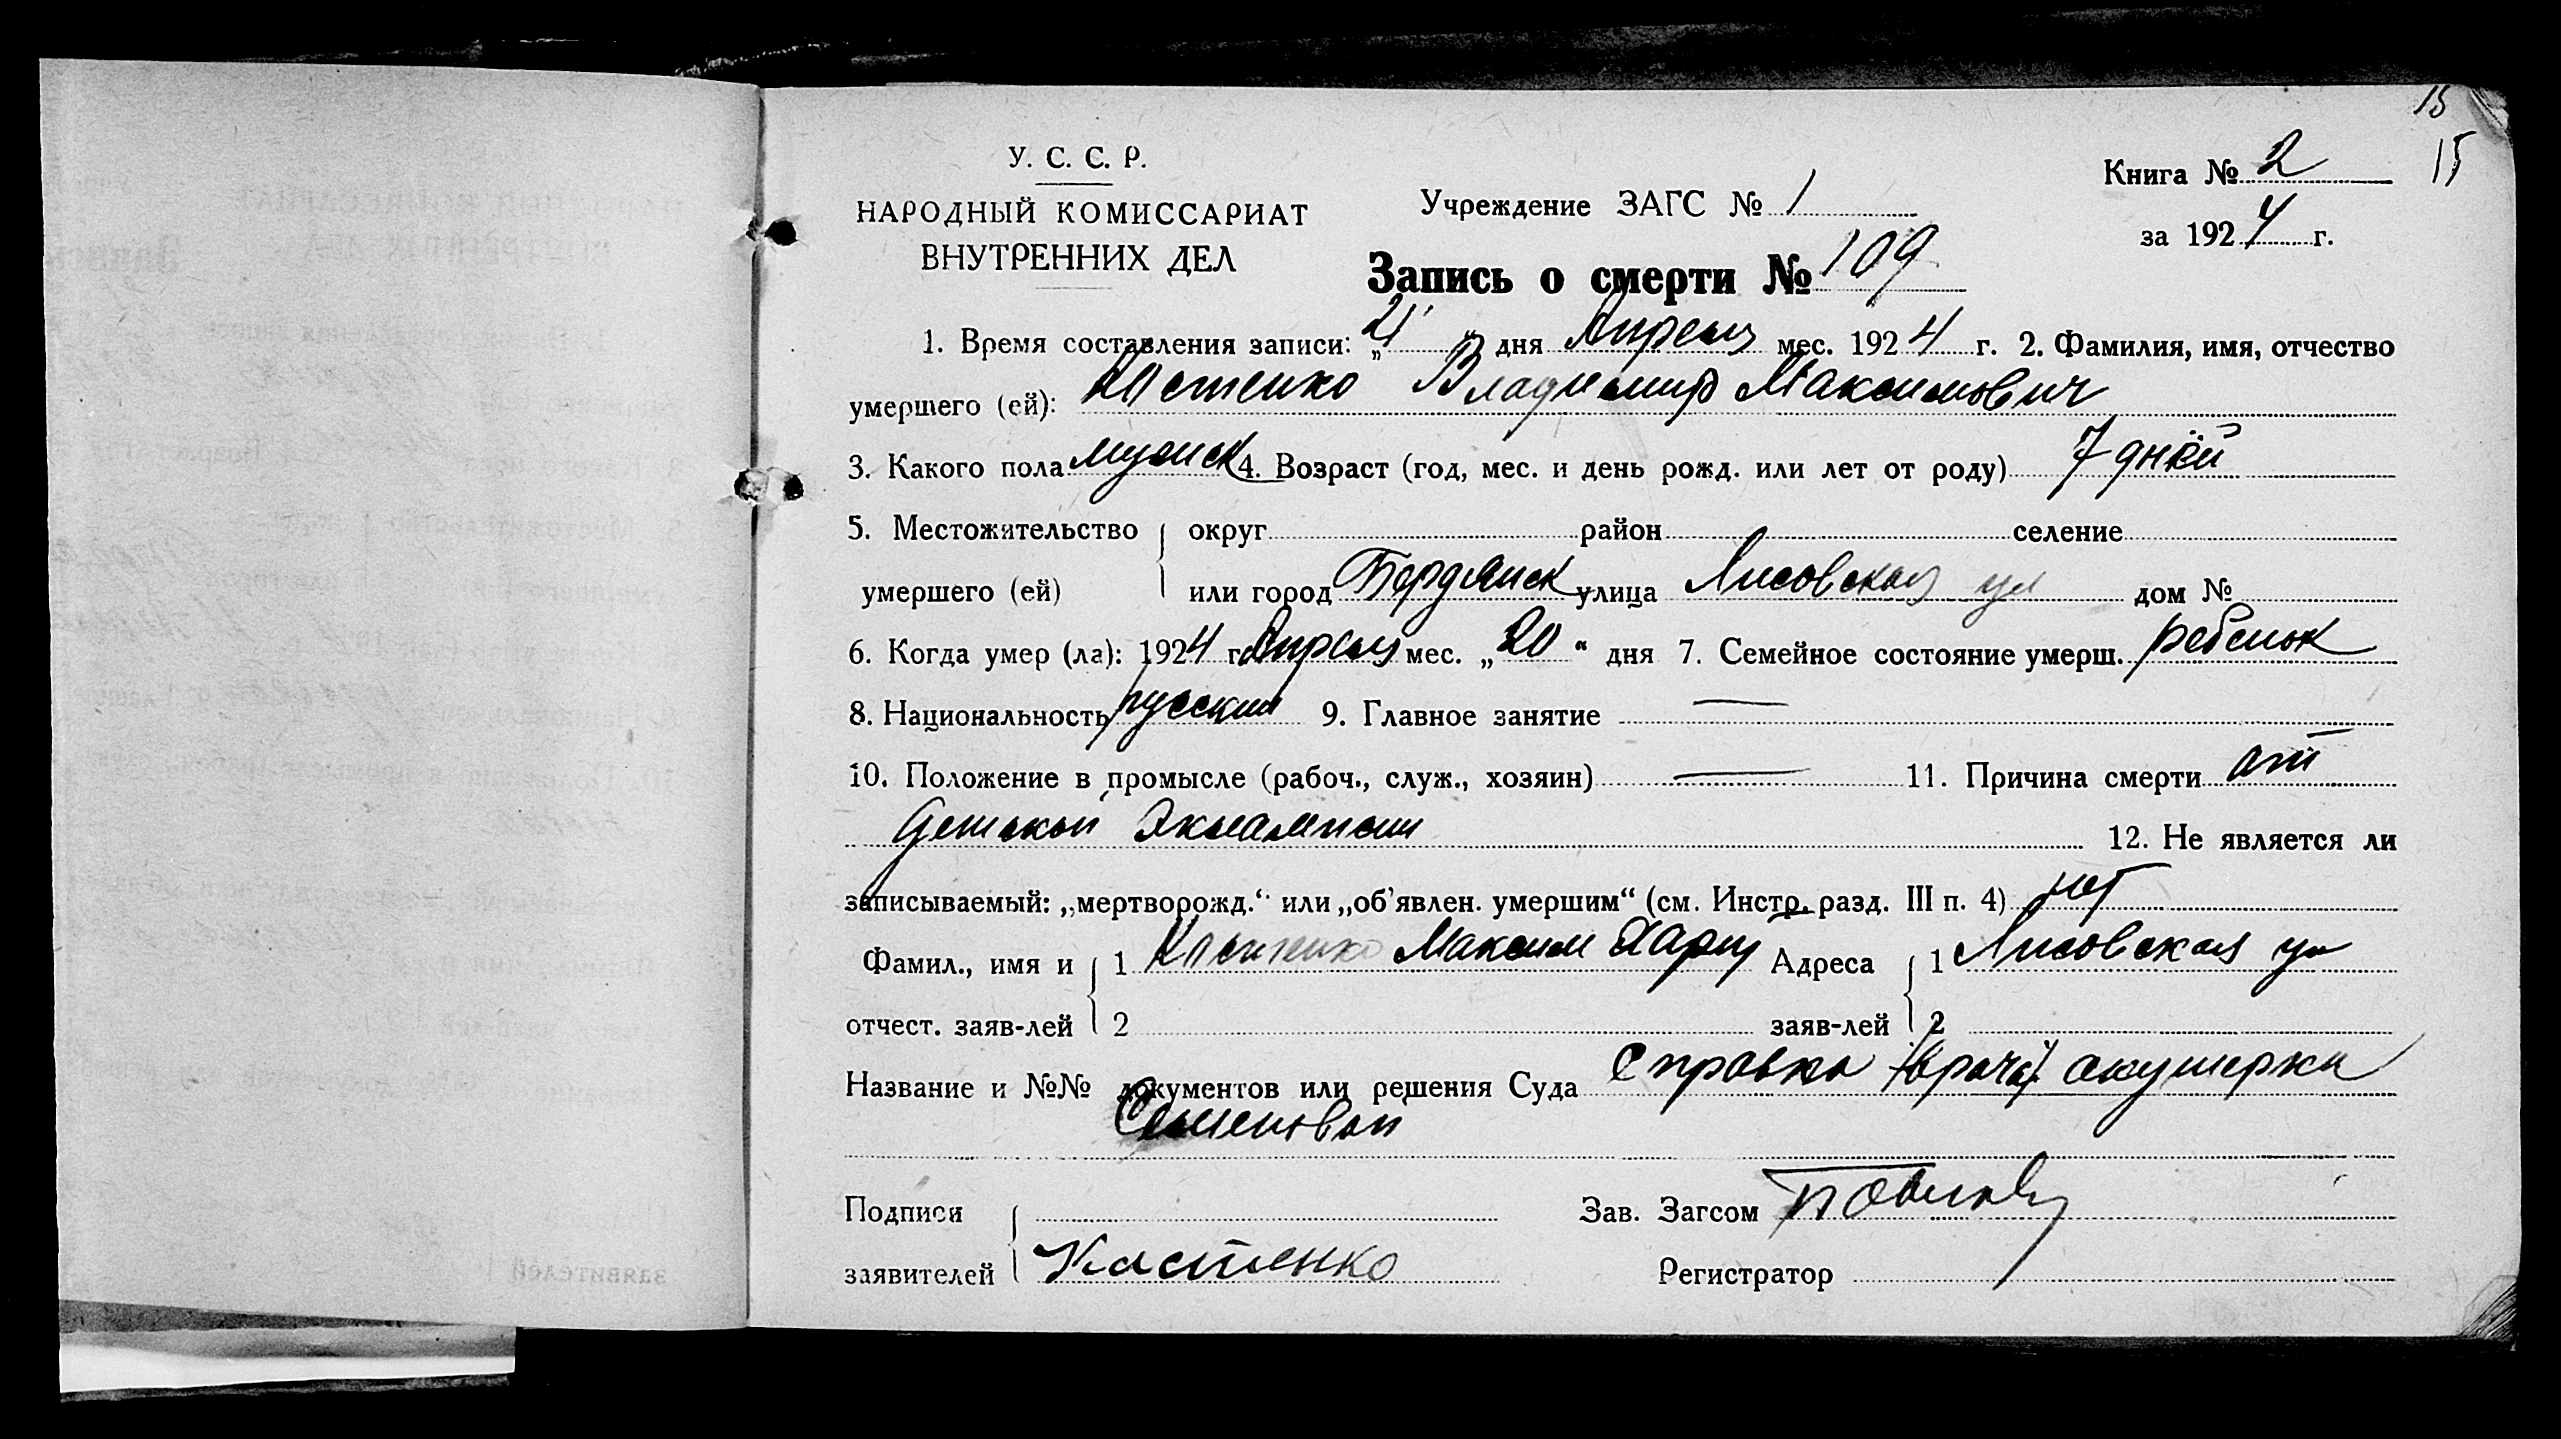 15
15
У. С. С. Р.
НАРОДНЫЙ КОМИССАРИАТ
ВНУТРЕННИХ ДЕЛ
Учреждение ЗАГС № 1
Книга № 2
за 1924 г.
Запись о смерти № 109
1. Время составления записи: „21" дня Апреля мес. 1924 г. 2. Фамилия, имя, отчество
умершего (ей): Владимир Максимович
3. Какого пола мужск 4. Возраст (год, мес. и день рожд. или лет от роду) 7 дней
5. Местожительство { округ район селение
умершего (ей) или город Бердянск улица Лисовская ул дом №
6. Когда умер (ла): 1924 г. Апреля мес. „20" дня 7. Семейное состояние умерш. ребенок
8. Национальность русский 9. Главное занятие —
10. Положение в промысле (рабоч., служ., хозяин) — 11. Причина смерти от
детской Эклампсии 12. Не является ли
записываемый: „мертворожд.“ или „об'явлен. умершим“ (см. Инстр. разд. III п. 4) нет
Фамил., имя и { 1 Максим Адреса { 1 Лисовская ул
отчест. заяв-лей 2 заяв-лей 2
Название и №№ документов или решения Суда Справка (врача) акушерки
Семеновой
Подписи { Зав. Загсом
заявителей Костенко Регистратор